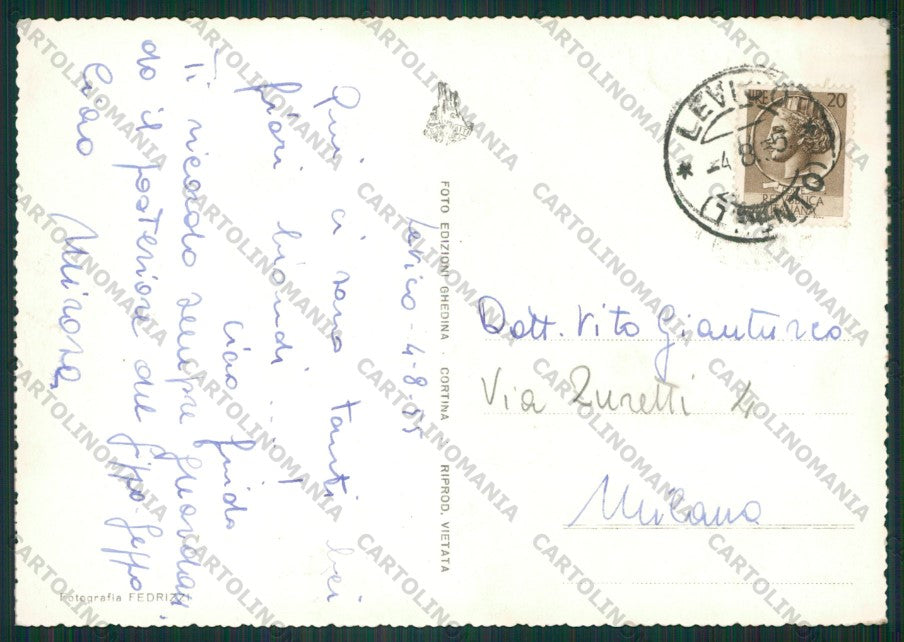 Levico - 4-8-55
Qui ci sono tanti bei
fiori biondi ...
ciao Guido
Ti ricordo sempre guardan
do il posteriore del Gippo-Geppo
Ciao
FOTO EDIZIONI GHEDINA - CORTINA - RIPROD. VIETATA
Fotografia FEDRIZZI
LIRE 20
4.8.55
Dott. Vito Gianturco
Via Zuretti 4
Milano
CARTOLINOMANIA